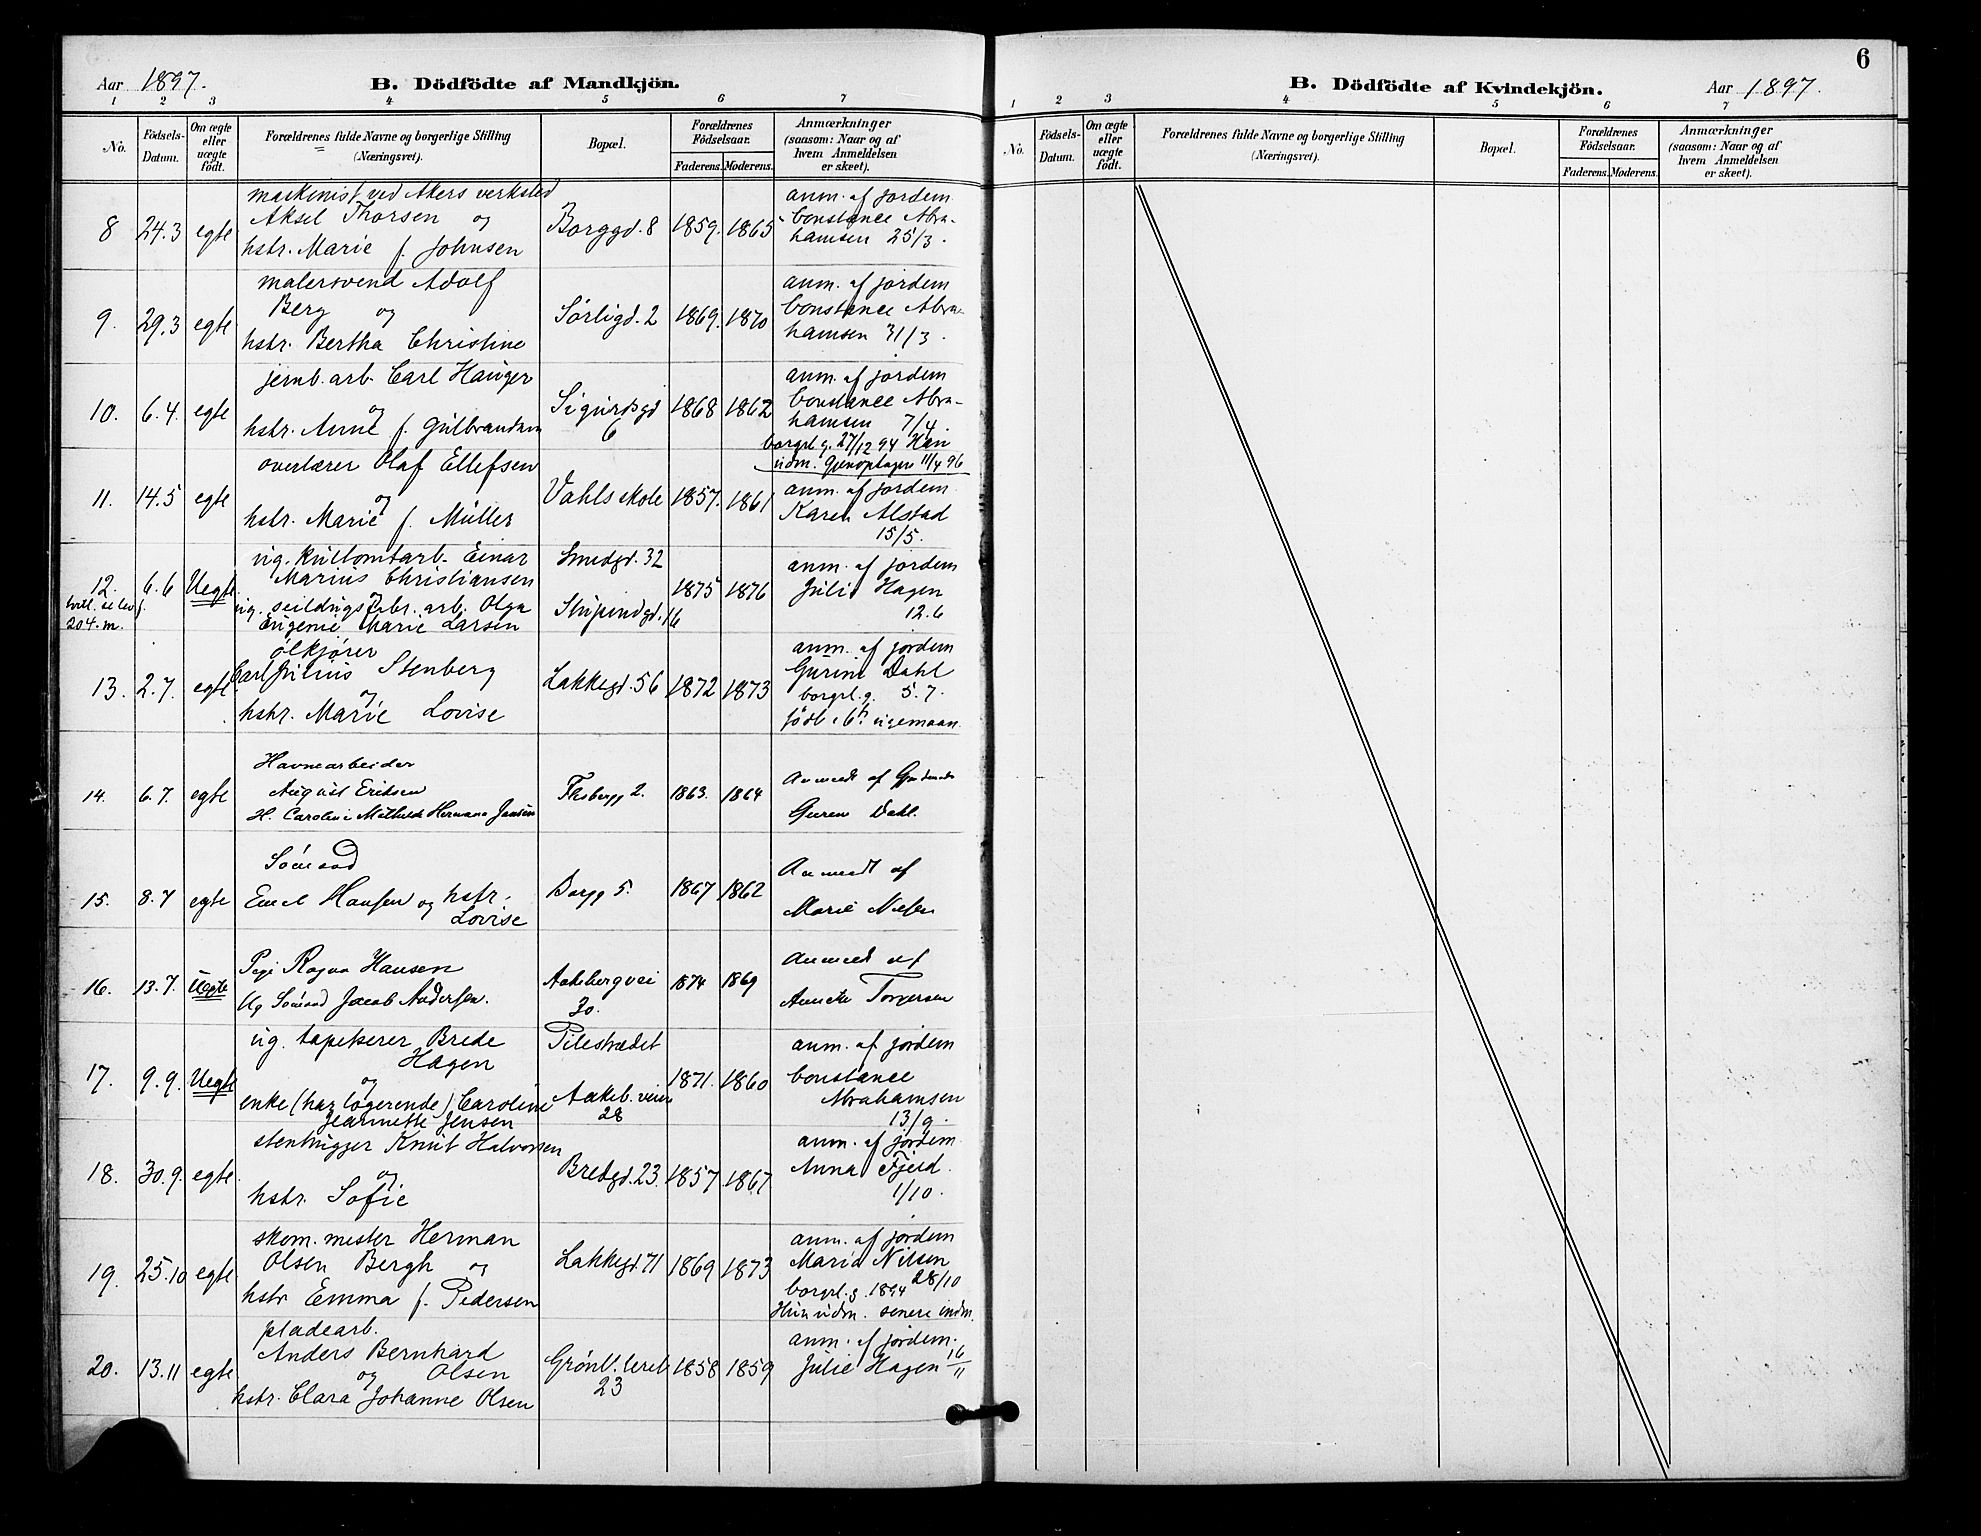 Aar 1897.
B. Dödfödte af Mandkjön.
1 2 3 4 5 6 7
No.
Födsels-Datum.
Om ægte eller uægte födt.
Forældrenes fulde Navne og borgerlige Stilling (Næringsvei).
Bopæl.
Forældrenes Födselsaar.
Faderens. Moderens.
Anmærkninger (saasom: Naar og af hvem Anmeldelsen er skeet).
maskinist ved Akers verksted
Aksel Thorsen og
hstr. Marie f. Johnsen
8 24.3 egte Borggd. 8 1859. 1865
anm. af jordem.
Constance Abra-
hamsen 25/3.
malersvend Adolf
Berg og
hstr. Bertha Christine
9. 29.3 egte Sörligd. 2 1869. 1870
anm. af jordem
Constance Abra-
hamsen 31/3.
jernb. arb. Carl Hauger
og
hstr. Anne f. Gulbrandsen
10. 6.4. egte Sigurdsgd 6 1868 1862
anm. af jordem
Constance Abra-
hamsen 7/4.
borgrl. g. 27/12 94 Han
udm. Gjenoptagen 11/4 96
overlærer Olaf Ellefsen
og
hstr. Marie f. Müller
11. 14.5 egte Vahls skole 1857. 1861
anm. af jordem.
Karen Alstad
15/5.
ug. Einar
Marius Christiansen
og
ug. seildugsfabr. arb. Olga
Eugenie Marie Larsen
12. 6.6 Uegte
204. m.
Smedgd. 32
16
1875 1876
anm. af jordem
Julie Hagen
12.6
ölkjører
Carl Julius Stenberg
og
hstr. Marie Lovise
13. 2.7. egte Lakkegd. 56 1872 1873
anm. af jordem
Gurine Dahl
borgrl. g. 5.7.
födt i 6te
Havnearbeider
August Eriksen
H. Caroline Mathilde Hermana Jansen
14. 6.7. egte 2. 1863. 1864
Anmeldt af
Guren Dahl.
Sömand
Emil Hansen og hstr.
Lovise
15. 8.7 egte Borgg 5. 1867 1862
Anmeldt af
Marie Nielsen
Pige Ragna Hansen
Ug Sömand Jacob Andersen.
16. 13.7. Uegte Aakebergvei 30. 1874 1869
Anmeldt af
Annette Torgersen
ug. tapetserer Brede
Hagen
og
enke (har logerende) Caroline
Jeannette Jensen
17. 9.9. Uegte
Pilestrædet
Aakeb. veien 28
1871. 1860
anm. af jordem
Constance
Abrahamsen
13/9.
stenhugger Knut Halvorsen
og
hstr. Sofie
18. 30.9. egte. Bredgd. 23. 1857 1867
anm. af jordem.
Anna Fjeld.
1/10.
skom. mester Herman
Olsen Bergh og
hstr Emma f. Pedersen
19. 25.10 egte Lakkegd 71 1869 1873
anm. af jordem
Maria Nilsen
28/10
borgrl. g. 1894
Hun udm. senere indm.
pladearb.
Anders Bernhard
og Olsen
hstr. Clara Johanne Olsen
20. 13.11 egte Grönl. leret 23 1858 1859
anm. af jordem.
Julie Hagen 16/11
6
B. Dödfödte af Kvindekjön.
Aar 1897.
1 2 3 4 5 6 7
No.
Födsels-Datum.
Om ægte eller uægte födt.
Forældrenes fulde Navne og borgerlige Stilling (Næringsvei).
Bopæl.
Forældrenes Födselsaar.
Faderens. Moderens.
Anmærkninger (saasom: Naar og af hvem Anmeldelsen er skeet).